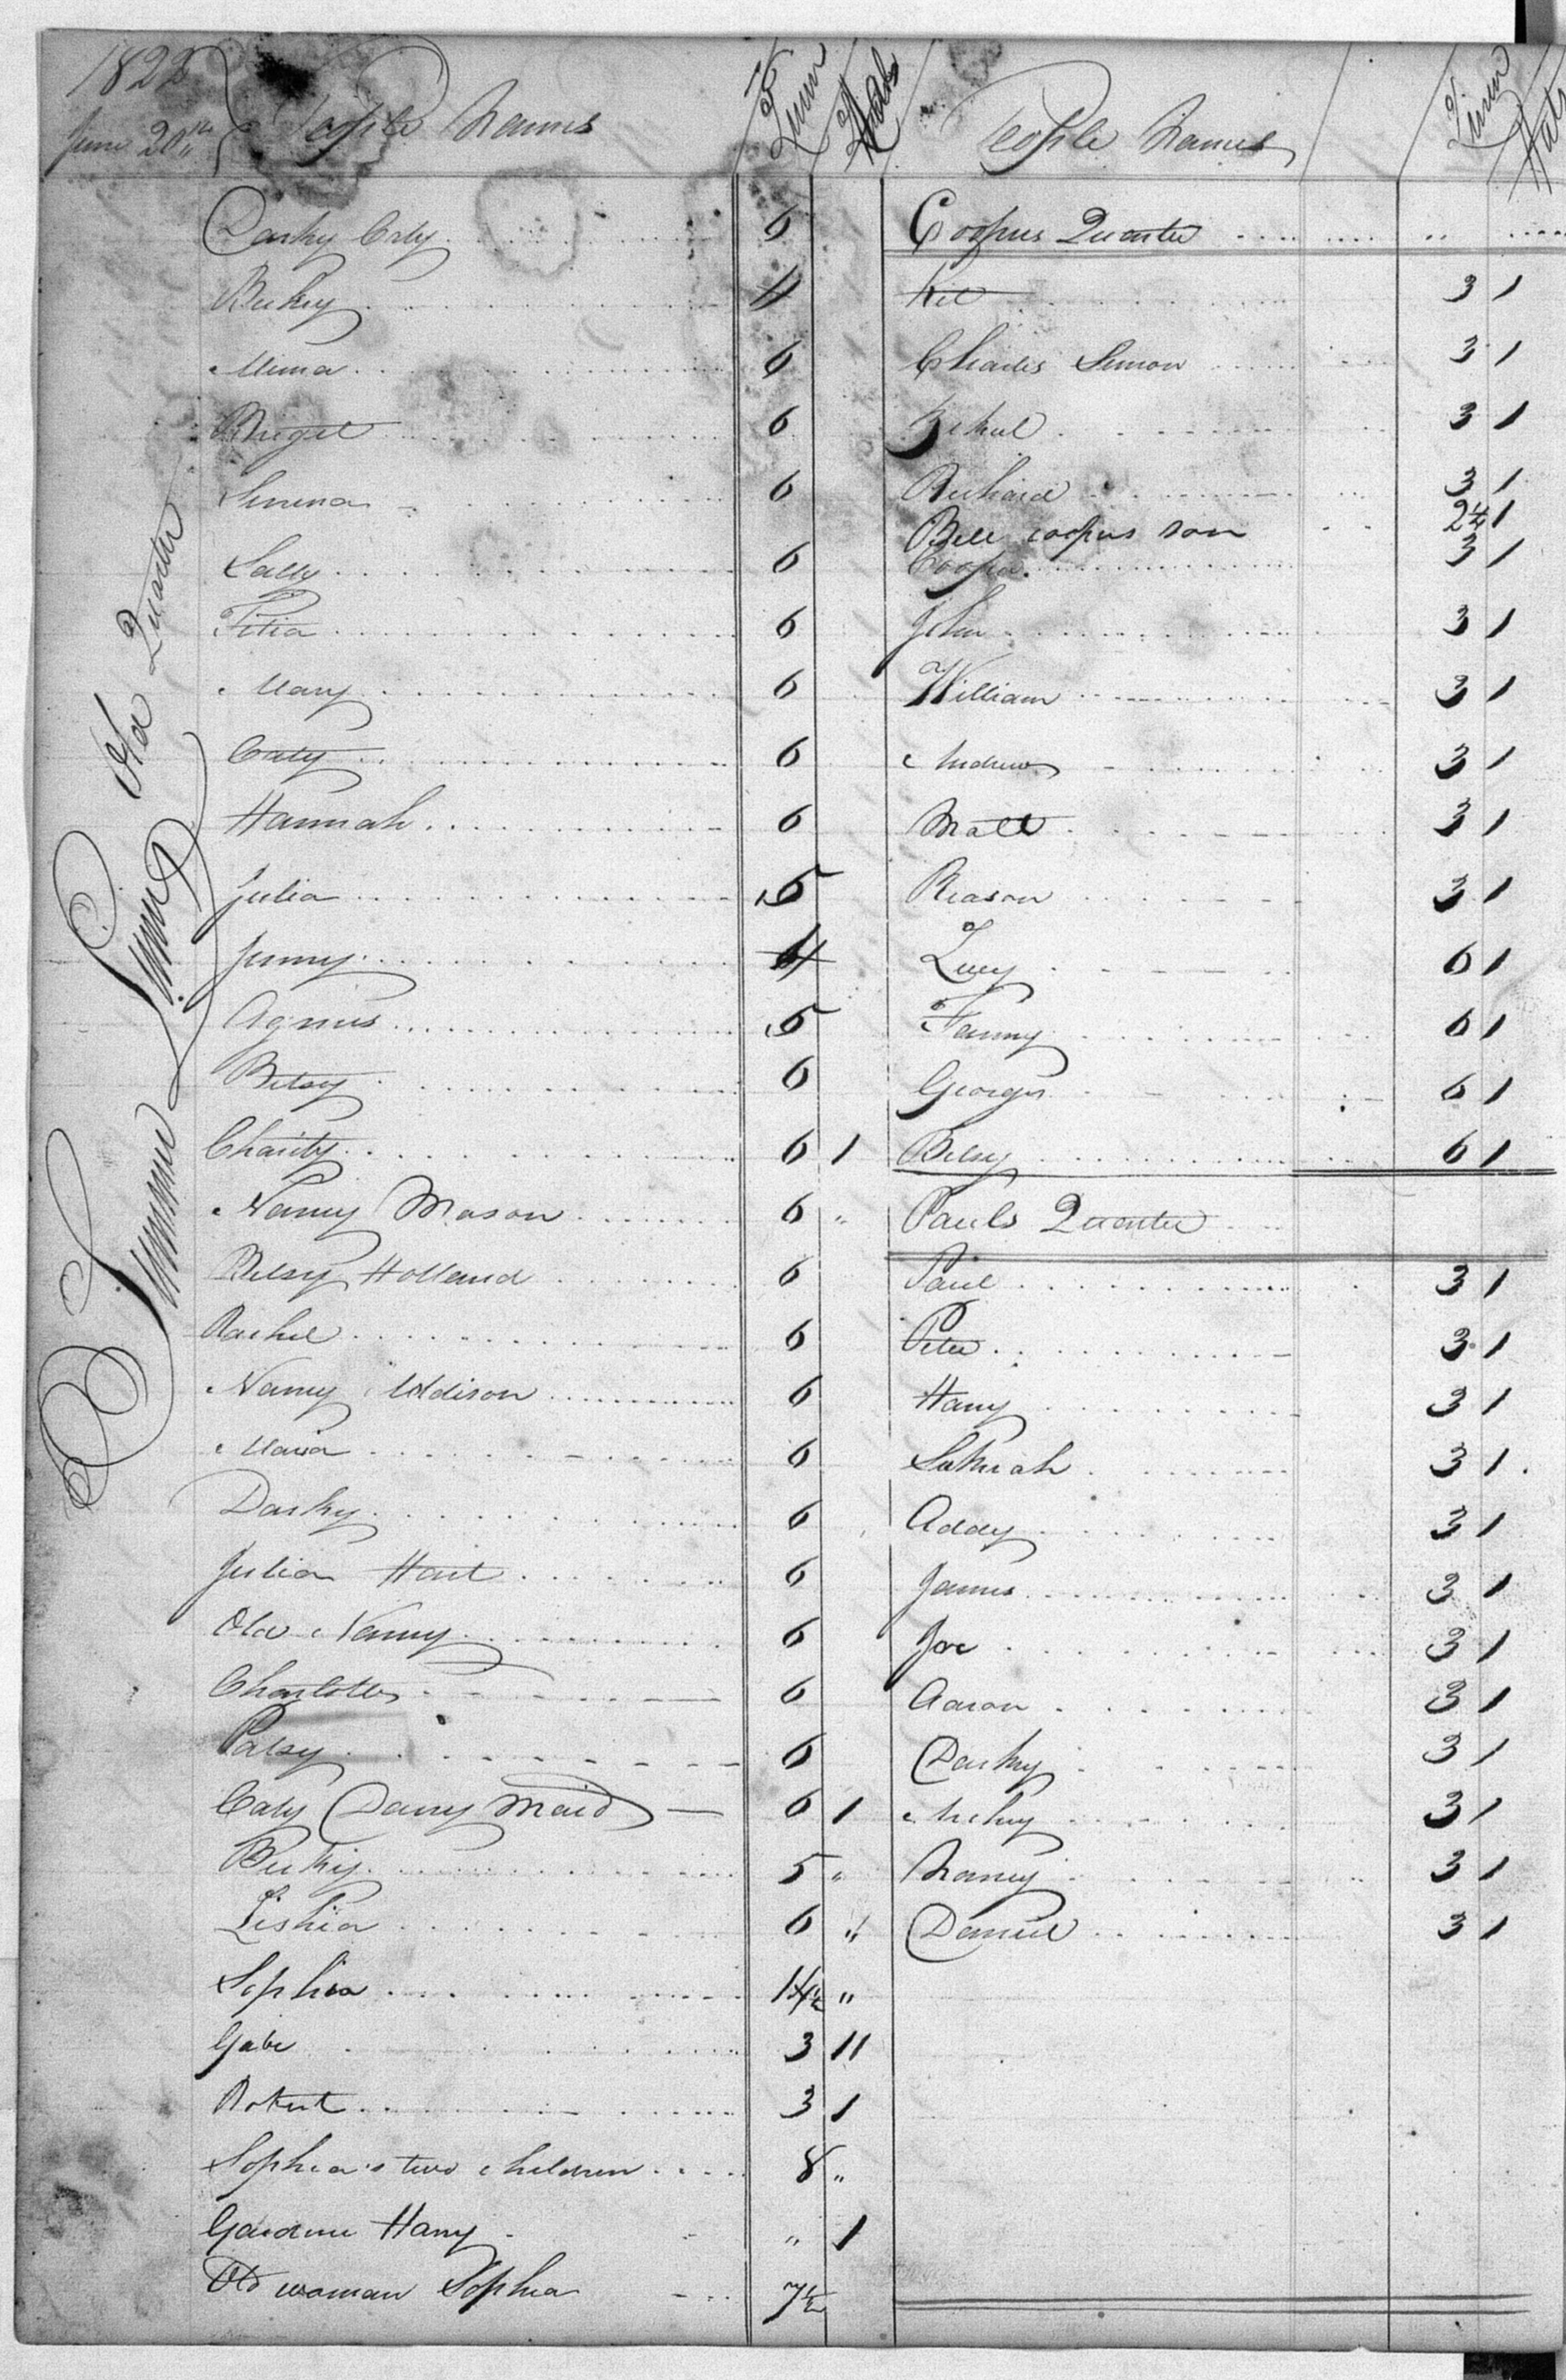 1822
June 20th
People Names
Linnen
Hats
Old Quarter
Summer Linnen
Darky Crly 6
Beckey 4
Mima 6
Briget 6
Sinina 6
Sally 6
Titia 6
Mary 6
Caty 6
Hannah 6
Julia 5
Jenny 4
Agnus 5
Betsy 6
Charity 6 1
Nancy Mason 6 "
Betsy Holland 6
Rachel 6
Nancy Addison 6
Maria 6
Darky 6
Julia Hart 6
Old Nancy 6
Charlotte 6
Patsy 6
Caty Dairy Maid 6 1
Beckey 5 "
Lishia 6 "
Sophia "
Gabe 3 11
Robert 3 1
Sophia's two children 8 "
Gardiner Harry " 1
Old woman Sophia 7½
People Names
Linnen
Hats
Coopers Quarter
Kit 3 1
Charles Simon 3 1
Zekiel 3 1
Richard 3 1
Bill coopers son 2¼ 1
Cooper 3 1
John 3 1
William 3 1
Andrew 3 1
Matt 3 1
Reason 3 1
Lucy 6 1
Fanny 6 1
Georges 6 1
Betsy 6 1
Pauls Quarter
Paul 3 1
Peter 3 1
Harry 3 1
3 1
Addy 3 1
James 3 1
Joe 3 1
Aaron 3 1
Darky 3 1
3 1
Nancy 3 1
Daniel 3 1